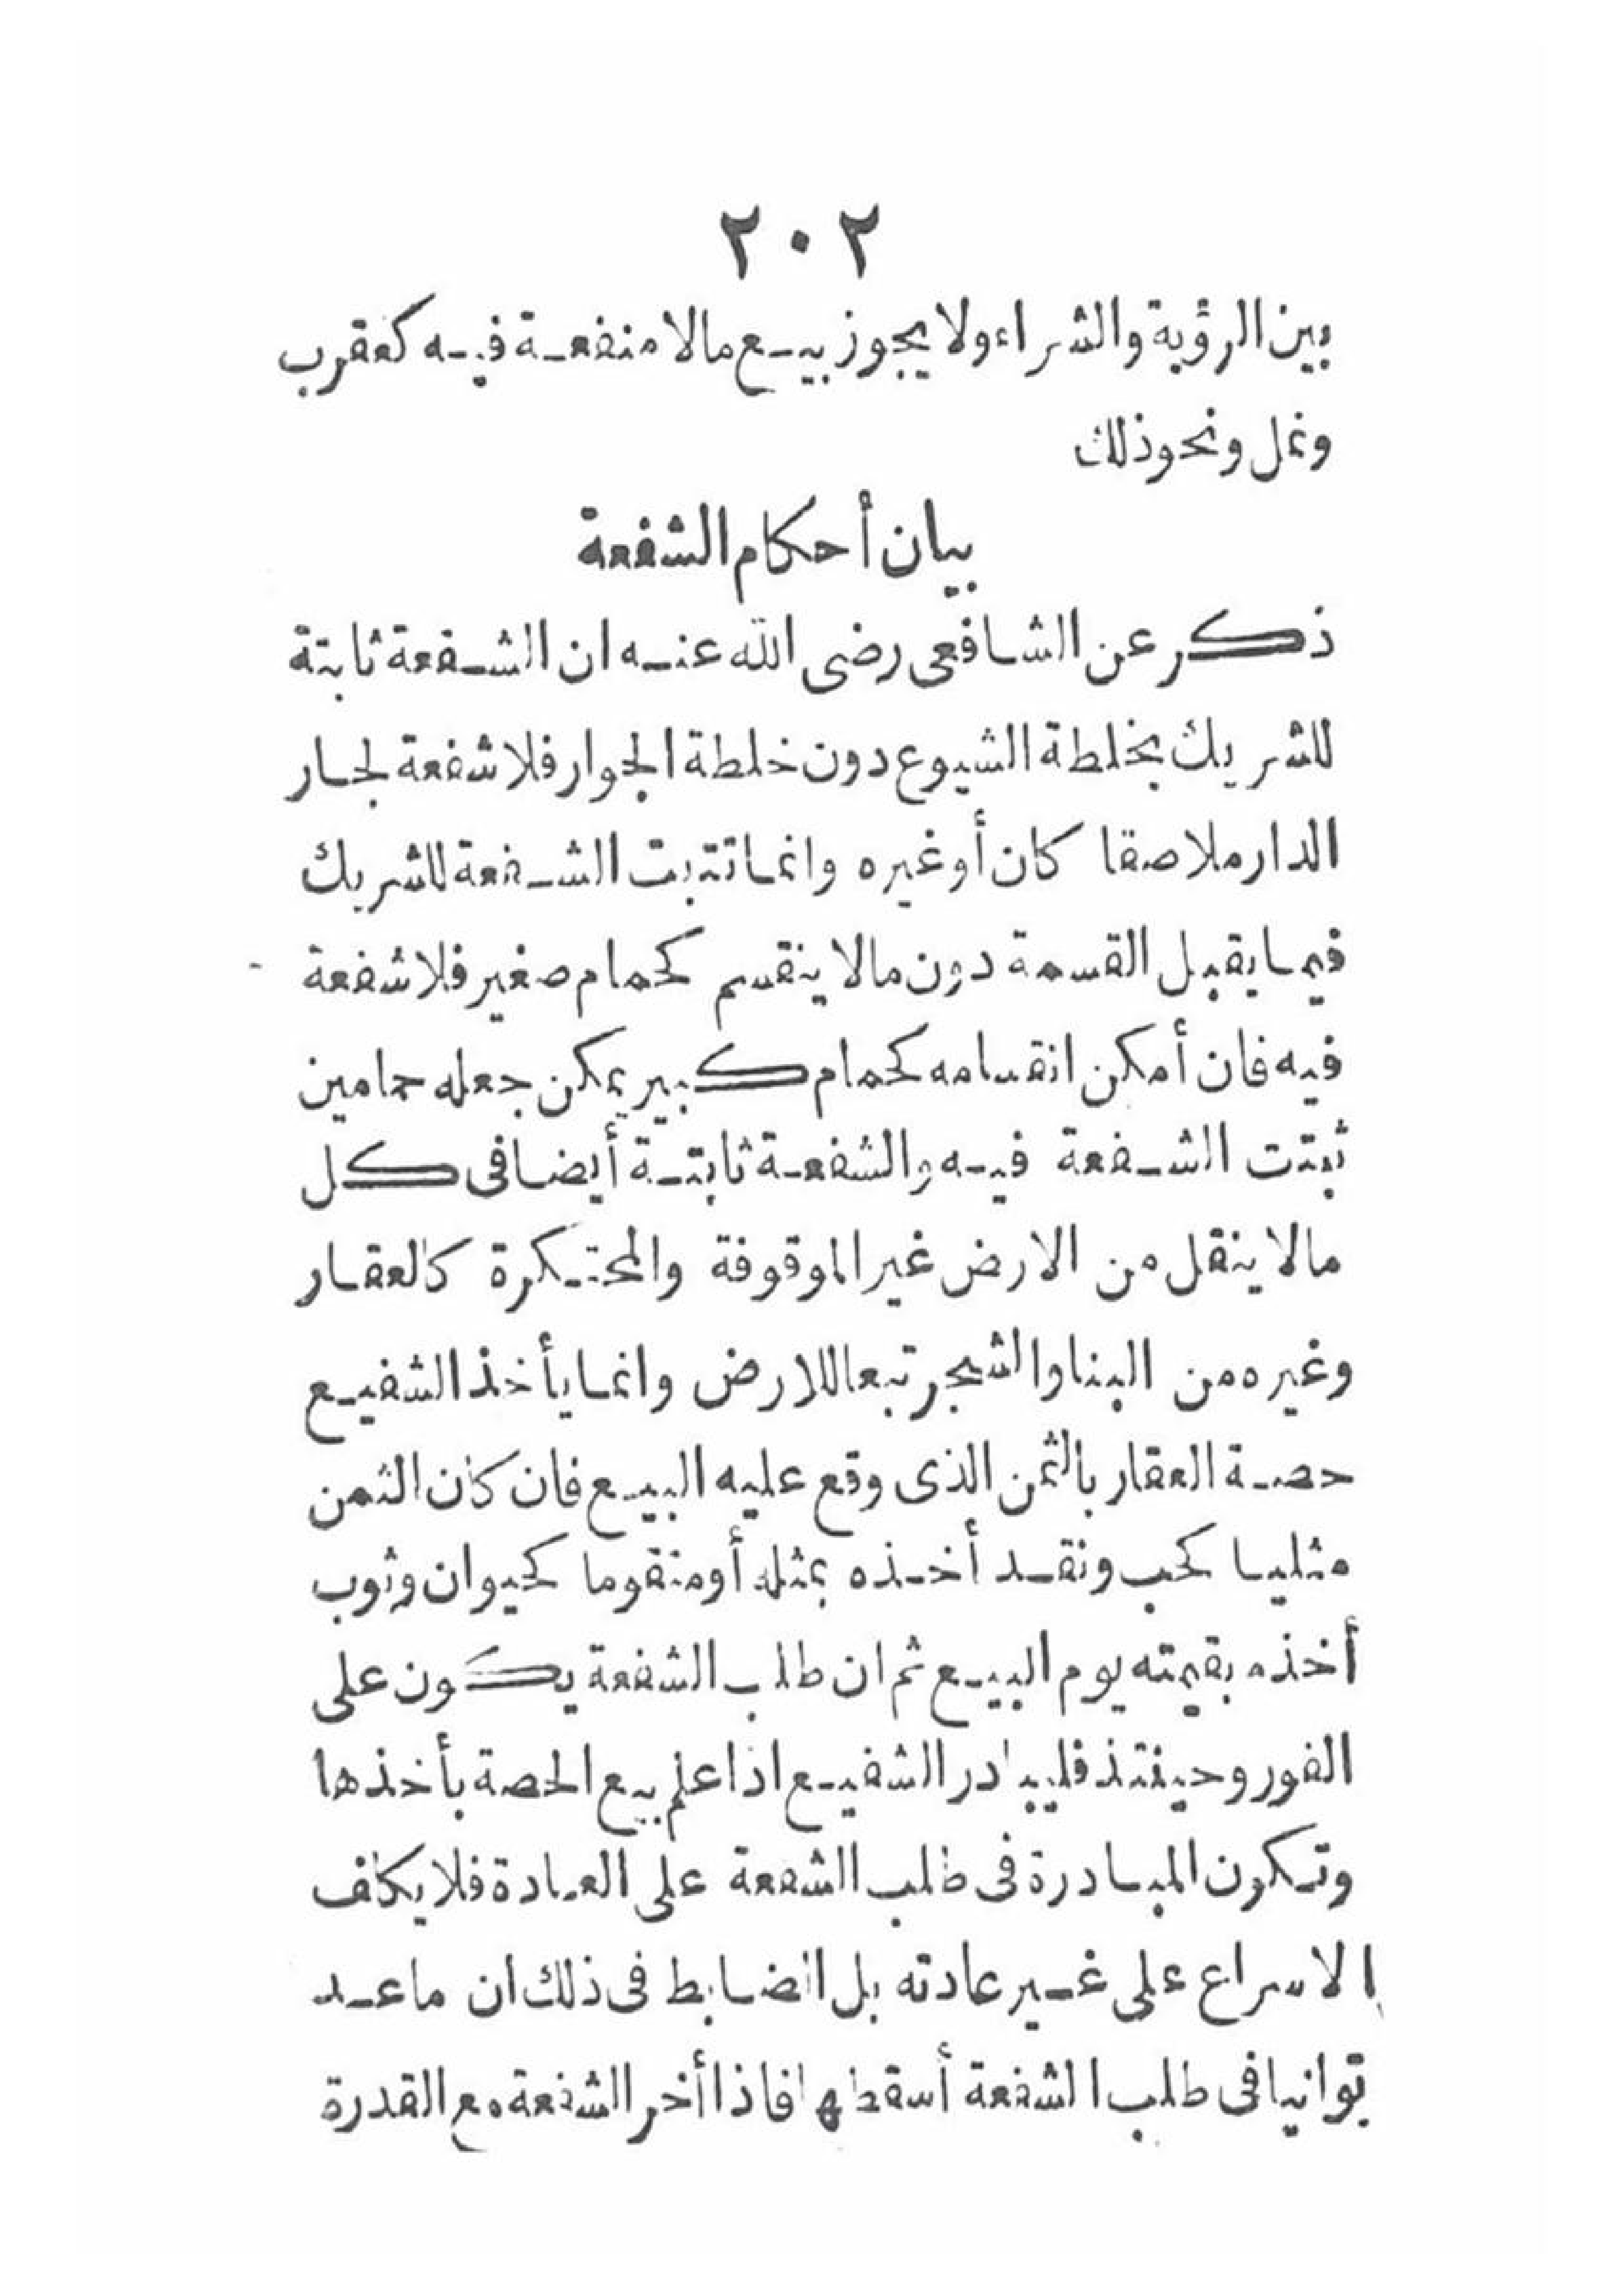 ٢٠٢
بين الرؤية والشراء ولا يجوز بيع مالا منفعة فيه كعقرب
ونمل ونحو ذلك
بيان أحكام الشفعة
ذكر عن الشافعى رضى الله عنه ان الشفعة ثابتة
للشريك بخلطة الشيوع دون خلطة الجوار فلا شفعة لجار
الدار ملاصقا كان أو غيره وانما تثبت الشفعة للشريك
فيما يقبل القسمة دون مالا ينقسم كحمام صغير فلا شفعة
فيه فان أمكن انقسامه كحمام كبير يمكن جعله حمامين
ثبتت الشفعة فيه والشفعة ثابتة أيضا فى كل
مالا ينقل من الارض غير الموقوفة والمحتكرة كالعقار
وغيره من البنا والشجر تبعا للارض وانما يأخذ الشفيع
حصة العقار بالثمن الذى وقع عليه البيع فان كان الثمن
مثليا كحب ونقد أخذه بمثله أو متقوما كحيوان وثوب
أخذه بقيمته يوم البيع ثم ان طلب الشفعة يكون على
الفور وحينئذ فليبادر الشفيع اذا علم بيع الحصة بأخذها
وتكون المبادرة فى طلب الشفعة على العادة فلا يكلف
الاسراع على غير عادته بل الضابط فى ذلك ان ما عد
توانيا فى طلب الشفعة أسقطها فاذا أخر الشفعة مع القدرة